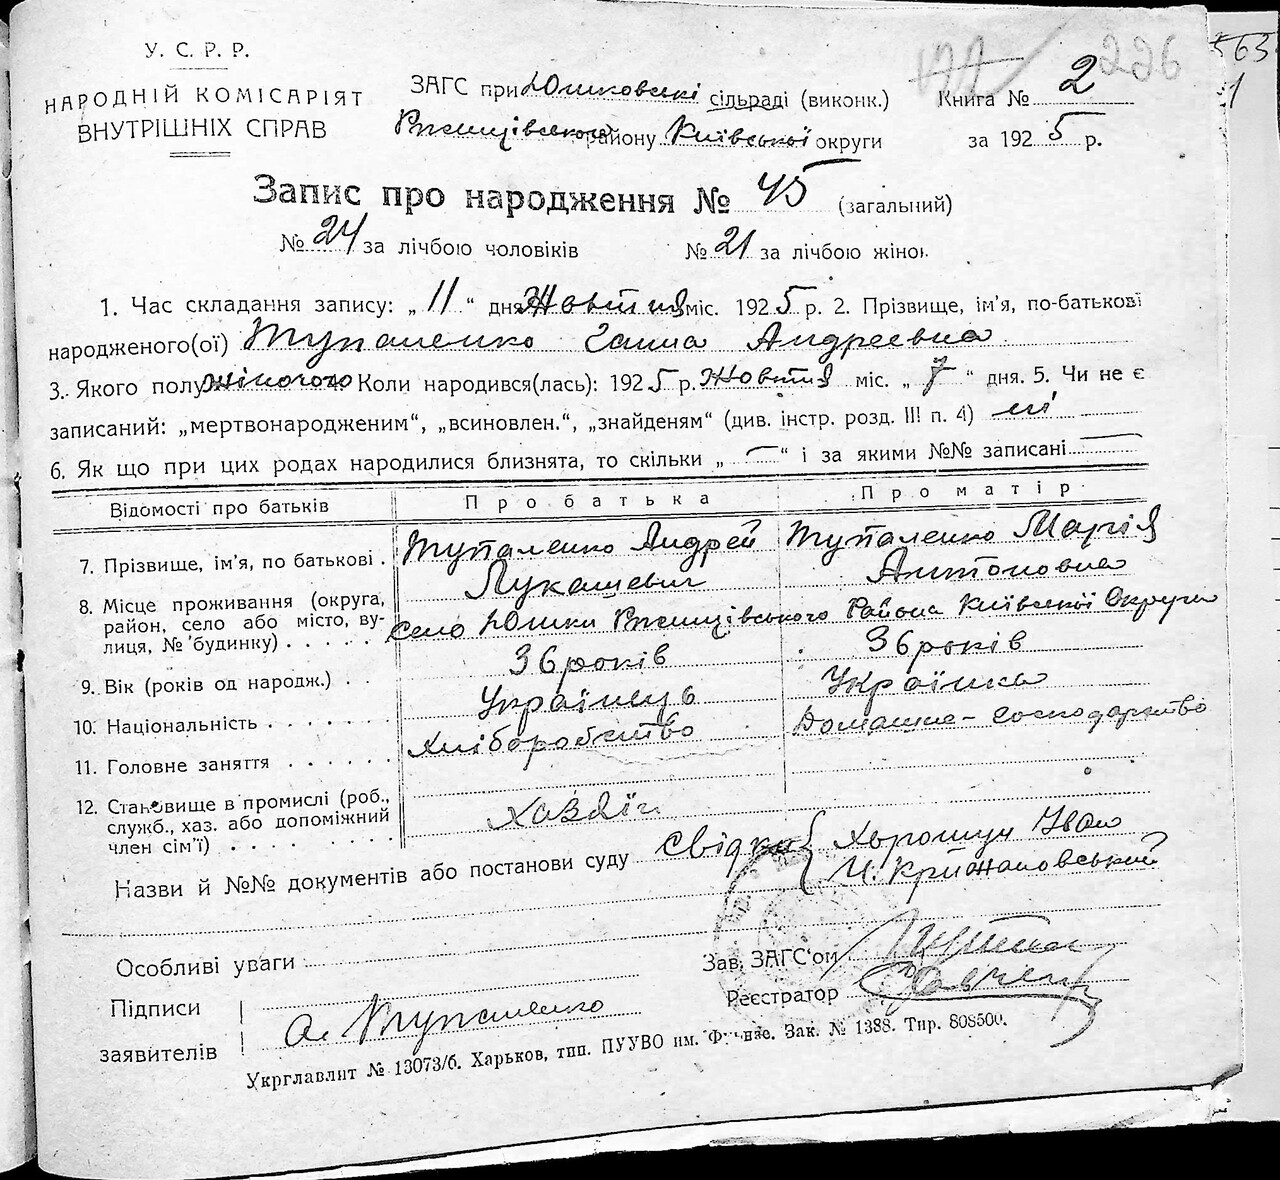 У. С. Р. Р.
НАРОДНІЙ КОМІСАРІЯТ
ВНУТРІШНІХ СПРАВ
226
563
1
ЗАГС при Юшковські сільраді (виконк.)
Ржищівського району Київської округи
Книга № 2
за 1925 р.
Запис про народження № 45 (загальний)
№ 24 за лічбою чоловіків № 21 за лічбою жінок
1. Час складання запису: „11“ дня Жовтня міс. 1925 р. 2. Прізвище, ім'я, по-батькові
народженого(ої) Тупаленко Ганна Андреевна
3. Якого полу жіночого Коли народився(лась): 1925 р. Жовтня міс. „7“ дня. 5. Чи не є
записаний: „мертвонародженим“, „всиновлен.“, „знайденям“ (див. інстр. розд. III п. 4) ні
6. Як що при цих родах народилися близнята, то скільки „—“ і за якими №№ записані —
Відомості про батьків Про батька Про матір
7. Прізвище, ім'я, по батькові . Тупаленко Андрей Лукашевич Тупаленко Марія Антоновна
8. Місце проживання (округа, район, село або місто, вулиця, № будинку) . . . . Село Юшки Ржищівського Района Київської Округи
9. Вік (років од народж.) . . 36 років 36 років
10. Національність . . . . . . . Українець Українка
11. Головне заняття . . . . . . Хліборобство Домашнє-господарство
12. Становище в промислі (роб., служб., хаз. або допоміжний член сім'ї) . . . . . . . Хазяїн
Назви й №№ документів або постанови суду Свідки { Хорошун Іван
И. Крижановський
Особливі уваги
Зав. ЗАГС'ом
Реєстратор
Підписи
заявителів
А. Тупаленко
Укрглавлит № 13073/б. Харьков, тип. ПУУВО им. Фрунзе. Зак. № 1388. Тир. 808500.